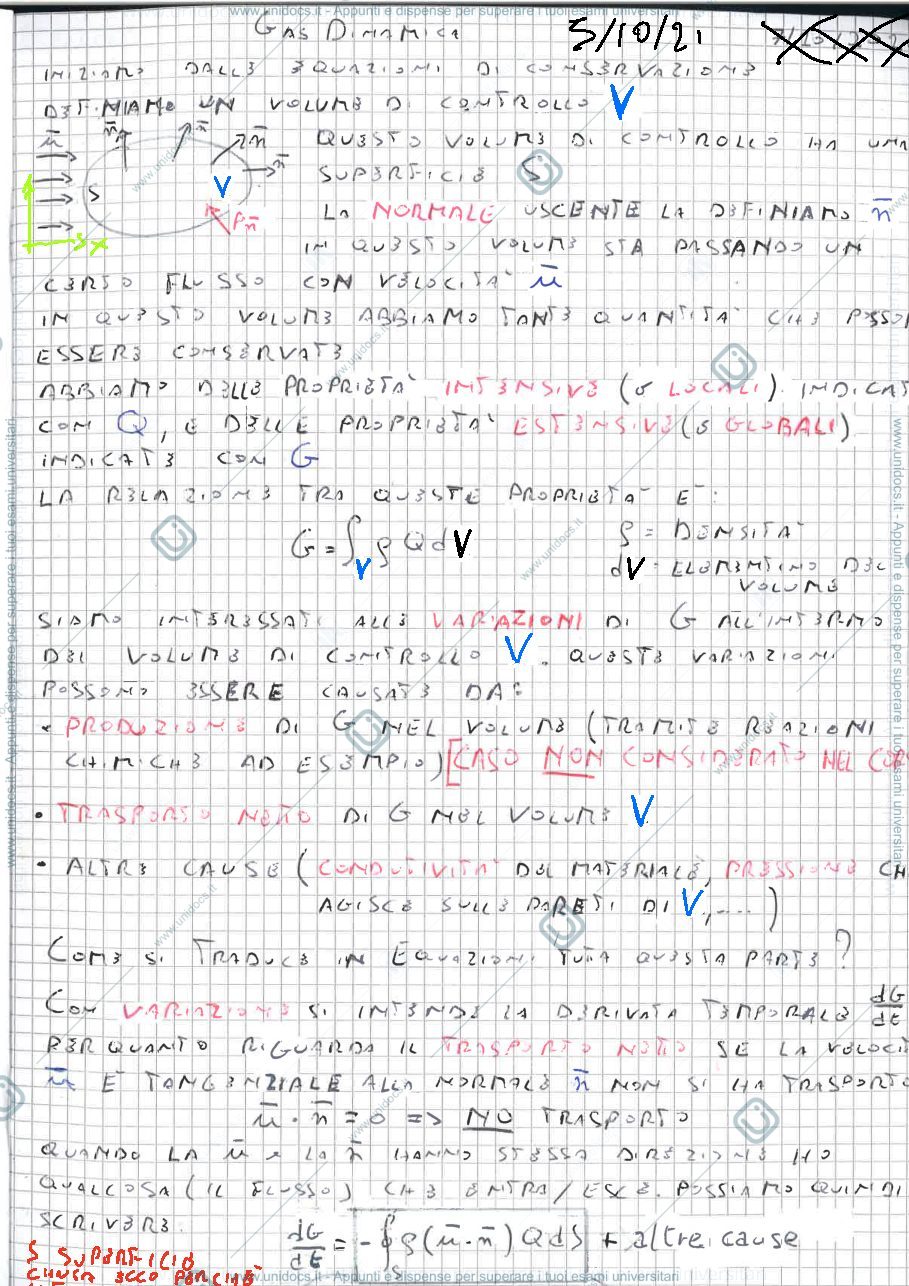 www.unidocs.it - Appunti e dispense per superare i tuoi esami universitari
GAS DINAMICA 5/10/21
INIZIAMO DALLE EQUAZIONI DI CONSERVAZIONE
DEFINIAMO UN VOLUME DI CONTROLLO V
QUESTO VOLUME DI CONTROLLO HA UNA
SUPERFICIE S
LA NORMALE USCENTE LA DEFINIAMO n̅
IN QUESTO VOLUME STA PASSANDO UN
u̅ n̅ n̅ n̅ n̅
S V
p n̅
x
CERTO FLUSSO CON VELOCITA' u̅
IN QUESTO VOLUME ABBIAMO TANTE QUANTITA' CHE POSSON
ESSERE CONSERVATE
ABBIAMO DELLE PROPRIETA' INTENSIVE (O LOCALI) INDICAT
CON Q, E DELLE PROPRIETA' ESTENSIVE (O GLOBALI)
INDICATE CON G
LA RELAZIONE TRA QUESTE PROPRIETA' E':
G = ∫_V ρ Q dV
ρ = DENSITA'
dV = ELEMENTINO DEL
VOLUME
SIAMO INTERESSATI ALLE VARIAZIONI DI G ALL'INTERNO
DEL VOLUME DI CONTROLLO V. QUESTE VARIAZIONI
POSSONO ESSERE CAUSATE DA:
• PRODUZIONE DI G NEL VOLUME (TRAMITE REAZIONI
CHIMICHE AD ESEMPIO) [CASO NON CONSIDERATO NEL COR
• TRASPORTO NETTO DI G NEL VOLUME V
• ALTRE CAUSE (CONDUTIVITA' DEL MATERIALE, PRESSIONE CH
AGISCE SULLE PARETI DI V, ....)
COME SI TRADUCE IN EQUAZIONI TUTTA QUESTA PARTE?
CON VARIAZIONE SI INTENDE LA DERIVATA TEMPORALE dG/dt
PER QUANTO RIGUARDA IL TRASPORTO NETTO SE LA VELOCIT
u̅ E' TANGENZIALE ALLA NORMALE n̅ NON SI HA TRASPORTO
u̅ · n̅ = 0 => NO TRASPORTO
QUANDO LA u̅ E LA n̅ HANNO STESSA DIREZIONE HO
QUALCOSA (IL FLUSSO) CHE ENTRA/ESCE. POSSIAMO QUINDI
SCRIVERE:
dG/dt = - ∮_S ρ (u̅ · n̅) Q dS + altre cause
S SUPERFICIE
CHIUSA ECCO PERCHE'
www.unidocs.it - Appunti e dispense per superare i tuoi esami universitari